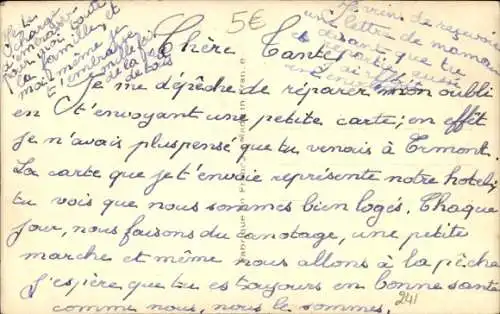 Je te
charge
d'embrasser
pour moi toute
la famille, et
moi même je
t'embrasse
de la part
de tous
5€
Je viens de recevoir
une lettre de maman
disant que tu
Chère Tante
Je me dépêche de réparer mon oubli
en t'envoyant une petite carte; en effet
je n'avais plus pensé que tu venais à Ermont.
La carte que je t'envoie représente notre hotel;
tu vois que nous sommes bien logés. Chaque
jour, nous faisons du canotage, une petite
marche et même nous allons à la pêche
J'espère que tu es toujours en bonne santé
comme nous, nous le sommes.
241
Fabriqué en France Made in France